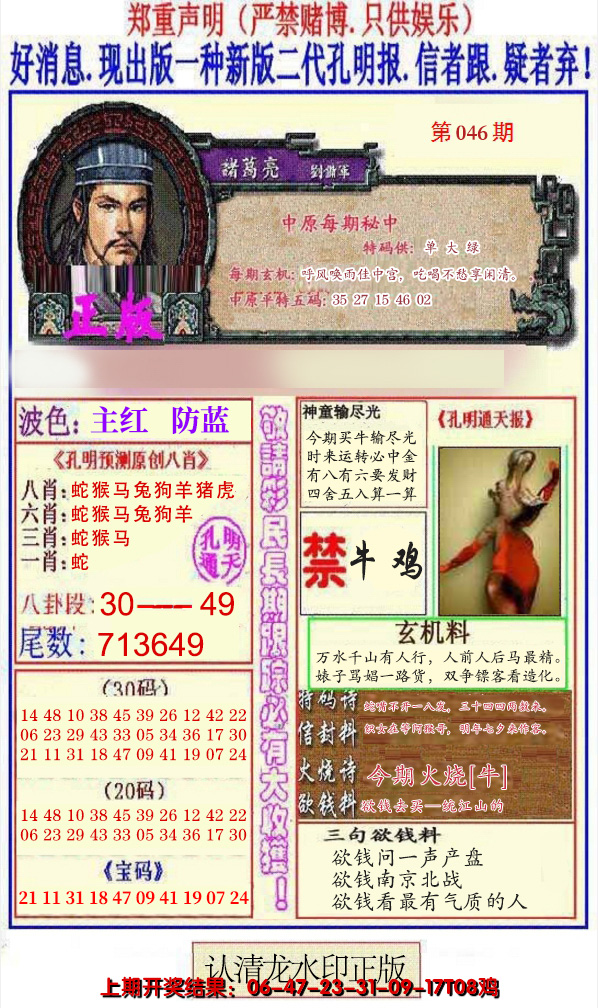 郑重声明（严禁赌博.只供娱乐）
好消息.现出版一种新版二代孔明报.信者跟.疑者弃!
第046期
諸葛亮
劉備軍
中原每期秘中
特码供: 单 大 绿
每期玄机: 呼风唤雨佳中宫，吃喝不愁享闲清。
中原平特五码: 35 27 15 46 02
正版
波色: 主红 防蓝
《孔明预测原创八肖》
八肖: 蛇猴马兔狗羊猪虎
六肖: 蛇猴马兔狗羊
三肖: 蛇猴马
一肖: 蛇
孔明
通天
八卦段: 30——49
尾数: 713649
(30码)
14 48 10 38 45 39 26 12 42 22
06 23 29 43 33 05 34 36 17 30
21 11 31 18 47 09 41 19 07 24
(20码)
14 48 10 38 45 39 26 12 42 22
06 23 29 43 33 05 34 36 17 30
《宝码》
21 11 31 18 47 09 41 19 07 24
敬請彩民長期跟踪必有大收獲！
神童输尽光
今期买牛输尽光
时来运转必中金
有八有六要发财
四舍五入算一算
《孔明通天报》
禁 牛 鸡
玄机料
万水千山有人行，人前人后马最精。
婊子骂娼一路货，双争镖客看造化。
特码诗 蛇嘴不开一八发，三十四四两数来。
信封料 织女在等阿猴哥，明年七夕来作客。
火烧诗 今期火烧[牛]
欲钱料 欲钱去买一统江山的
三句欲钱料
欲钱问一声产盘
欲钱南京北战
欲钱看最有气质的人
认清龙水印正版
上期开奖结果：06-47-23-31-09-17T08鸡